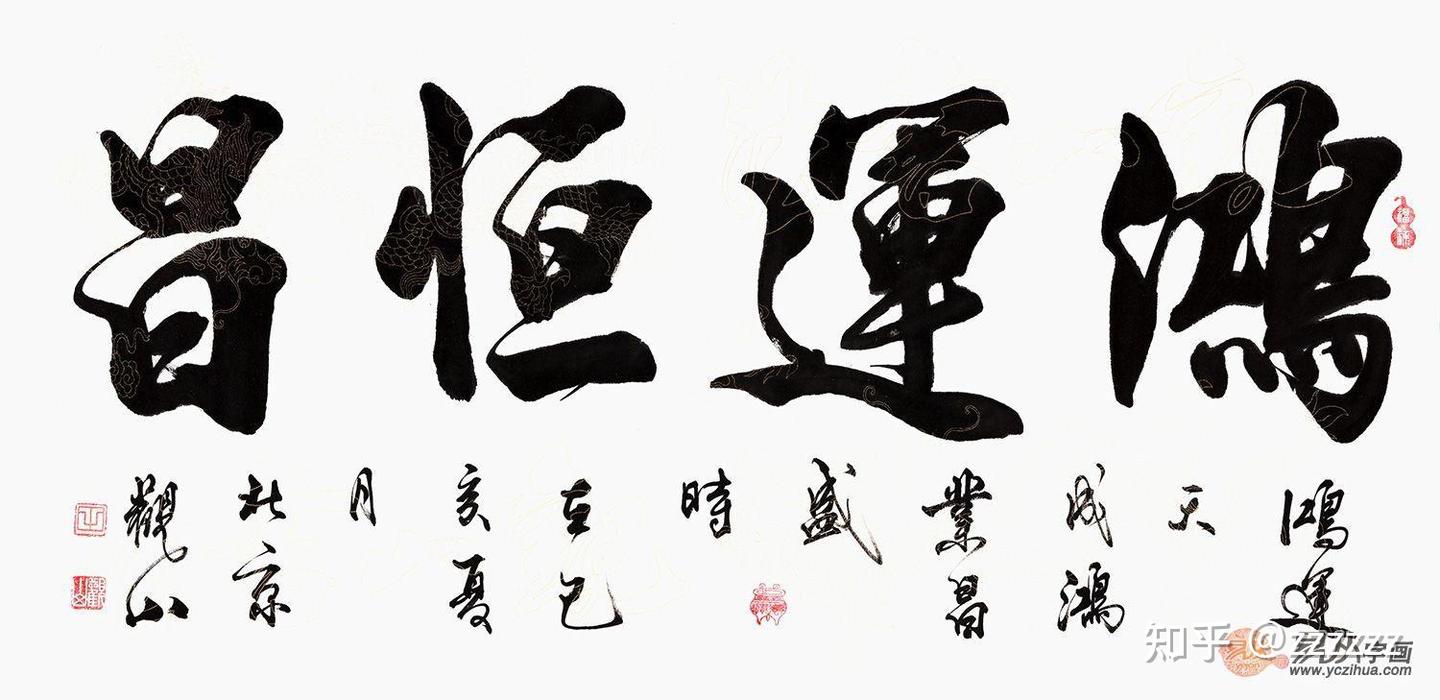 鴻運恒昌
鴻運
天
成鴻
業昌
盛
時
在己
亥夏
月
北京
觀山
知乎
易从字画
www.yczihua.com